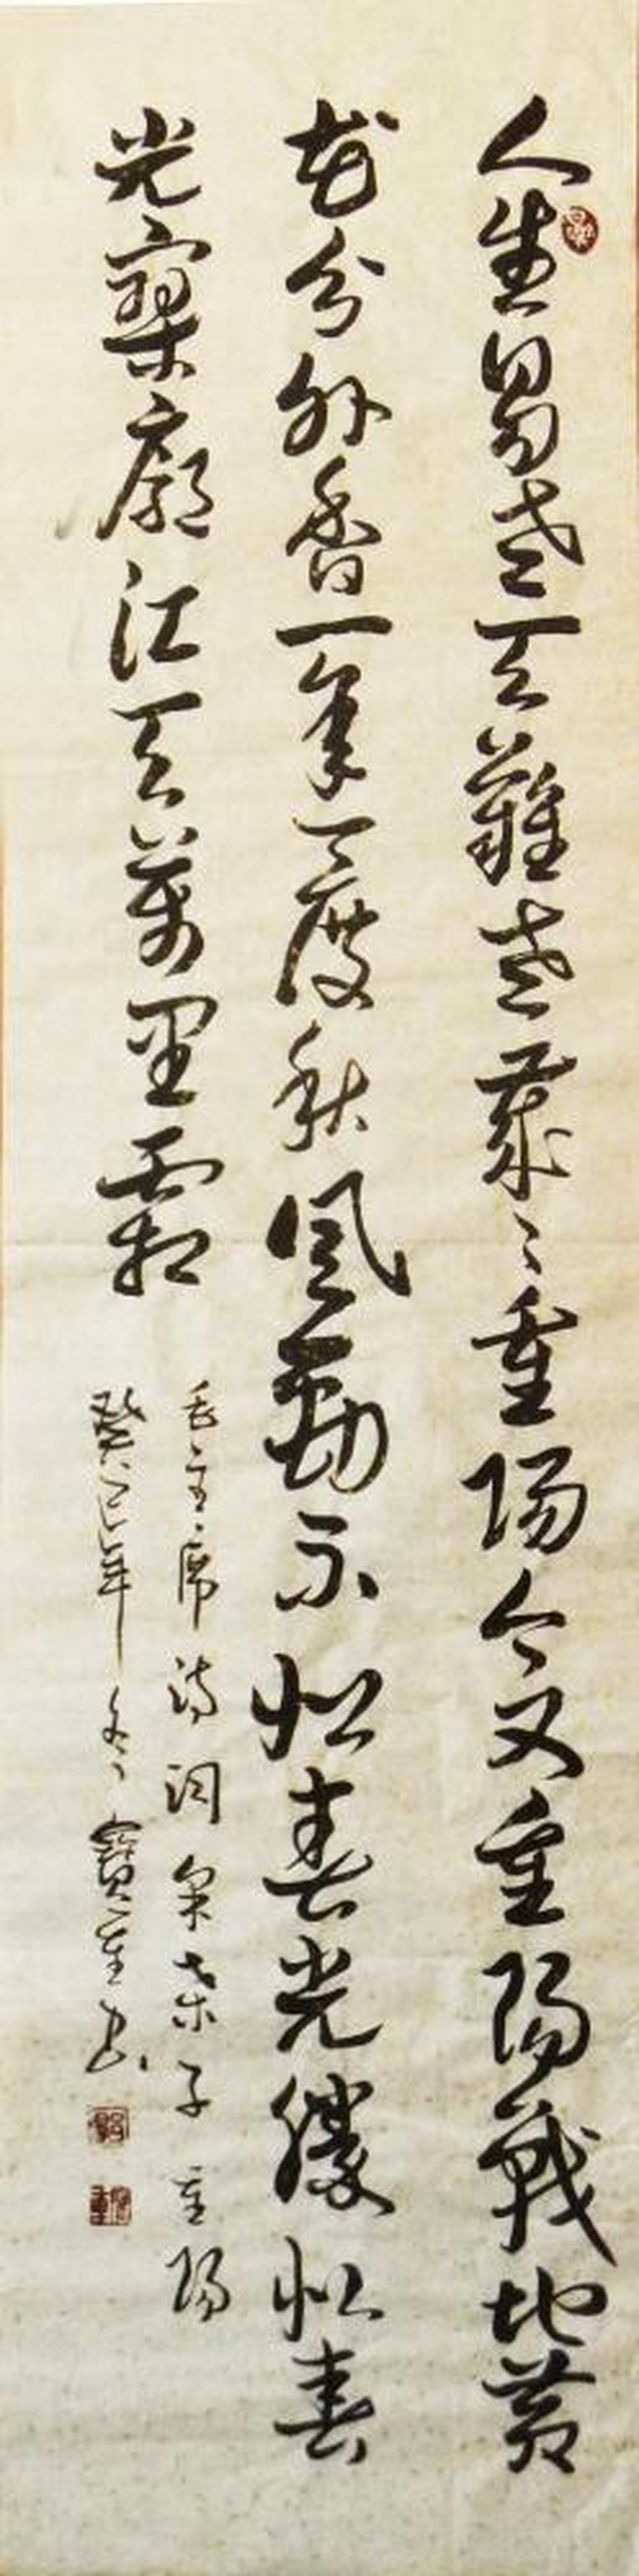 人生易老天難老歲〻重陽今又重陽戰地黃
花分外香一年一度秋風勁不似春光勝似春
光寥廓江天萬里霜
毛主席詩詞采桑子重陽
癸巳年冬寶重书